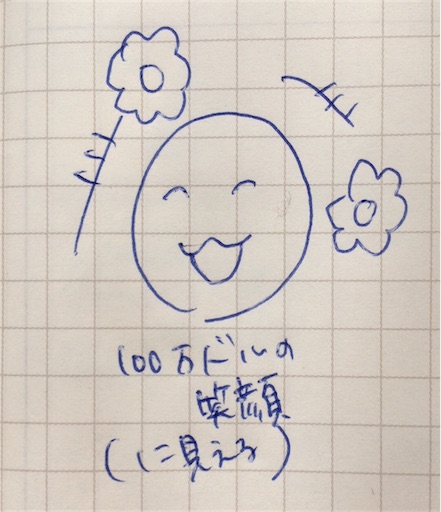 100万ドルの
笑顔
(に見える)